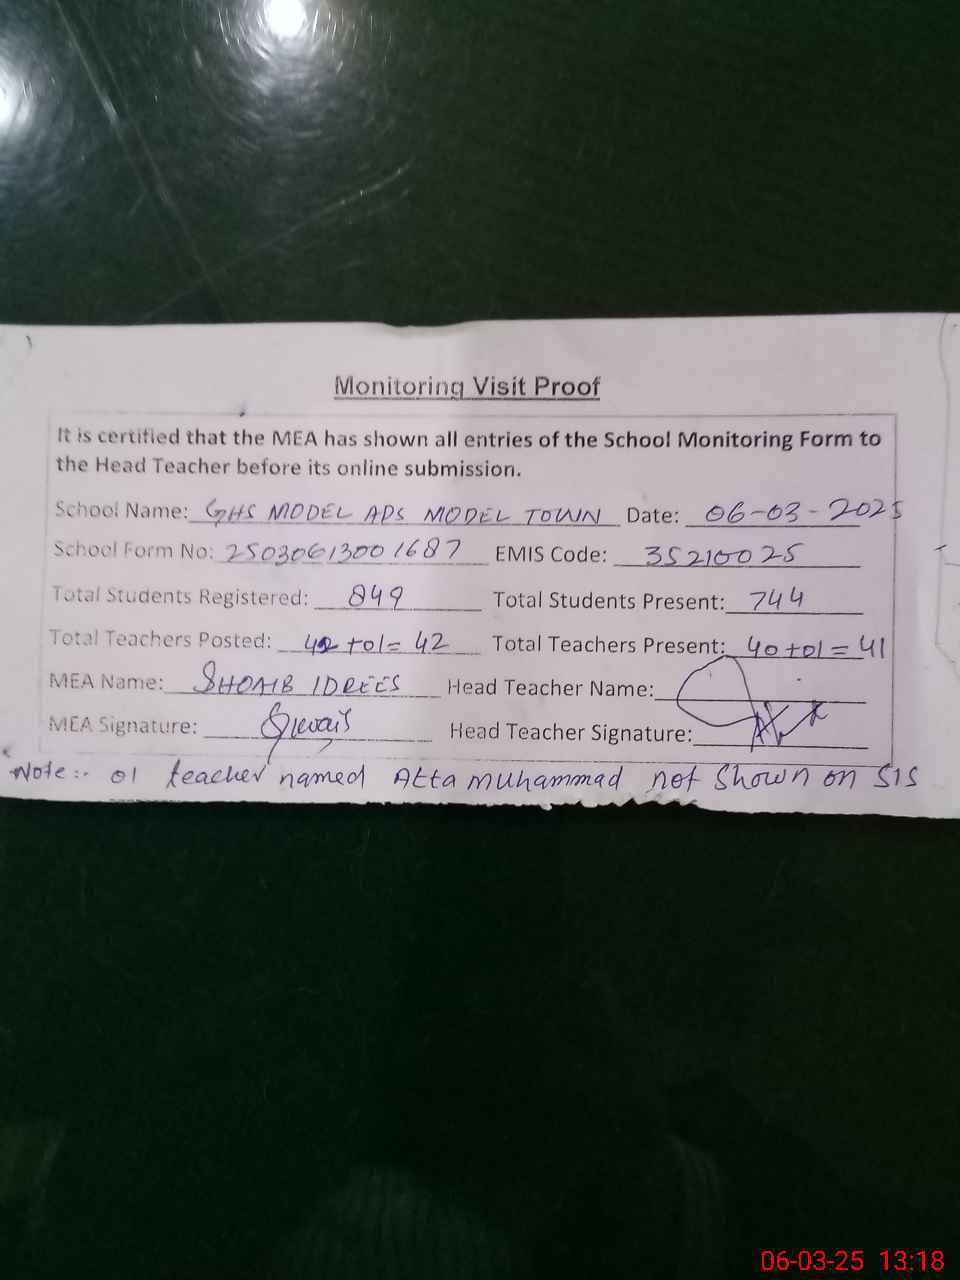 Monitoring Visit Proof
It is certified that the MEA has shown all entries of the School Monitoring Form to
the Head Teacher before its online submission.
School Name: GHS MODEL APS MODEL TOWN Date: 06-03-2025
School Form No: 25030613001687 EMIS Code: 35210025
Total Students Registered: 849 Total Students Present: 744
Total Teachers Posted: +01= 42 Total Teachers Present: 40+01=41
MEA Name: SHOAIB IDREES Head Teacher Name:
MEA Signature: Head Teacher Signature:
Note:- 01 teacher named Atta muhammad not shown on SIS
06-03-25 13:18